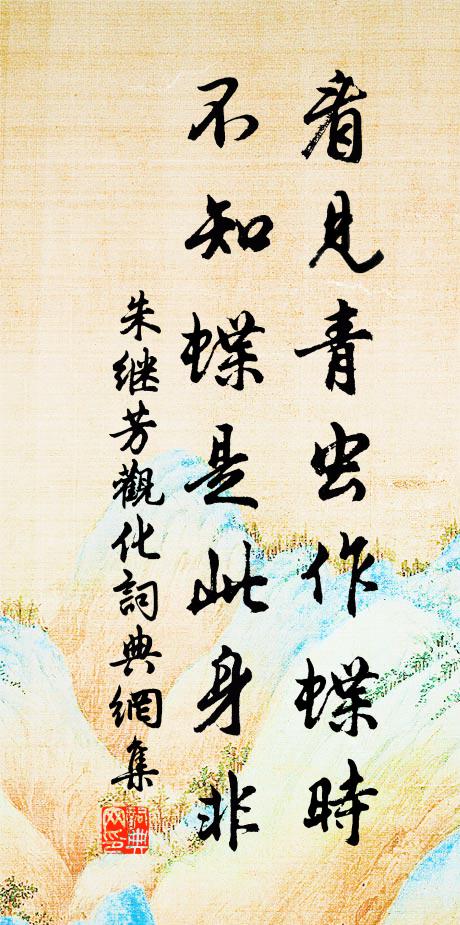 看見青虫作蝶時
不知蝶是此身非
朱继芳觀化詞典網集
詞典网印